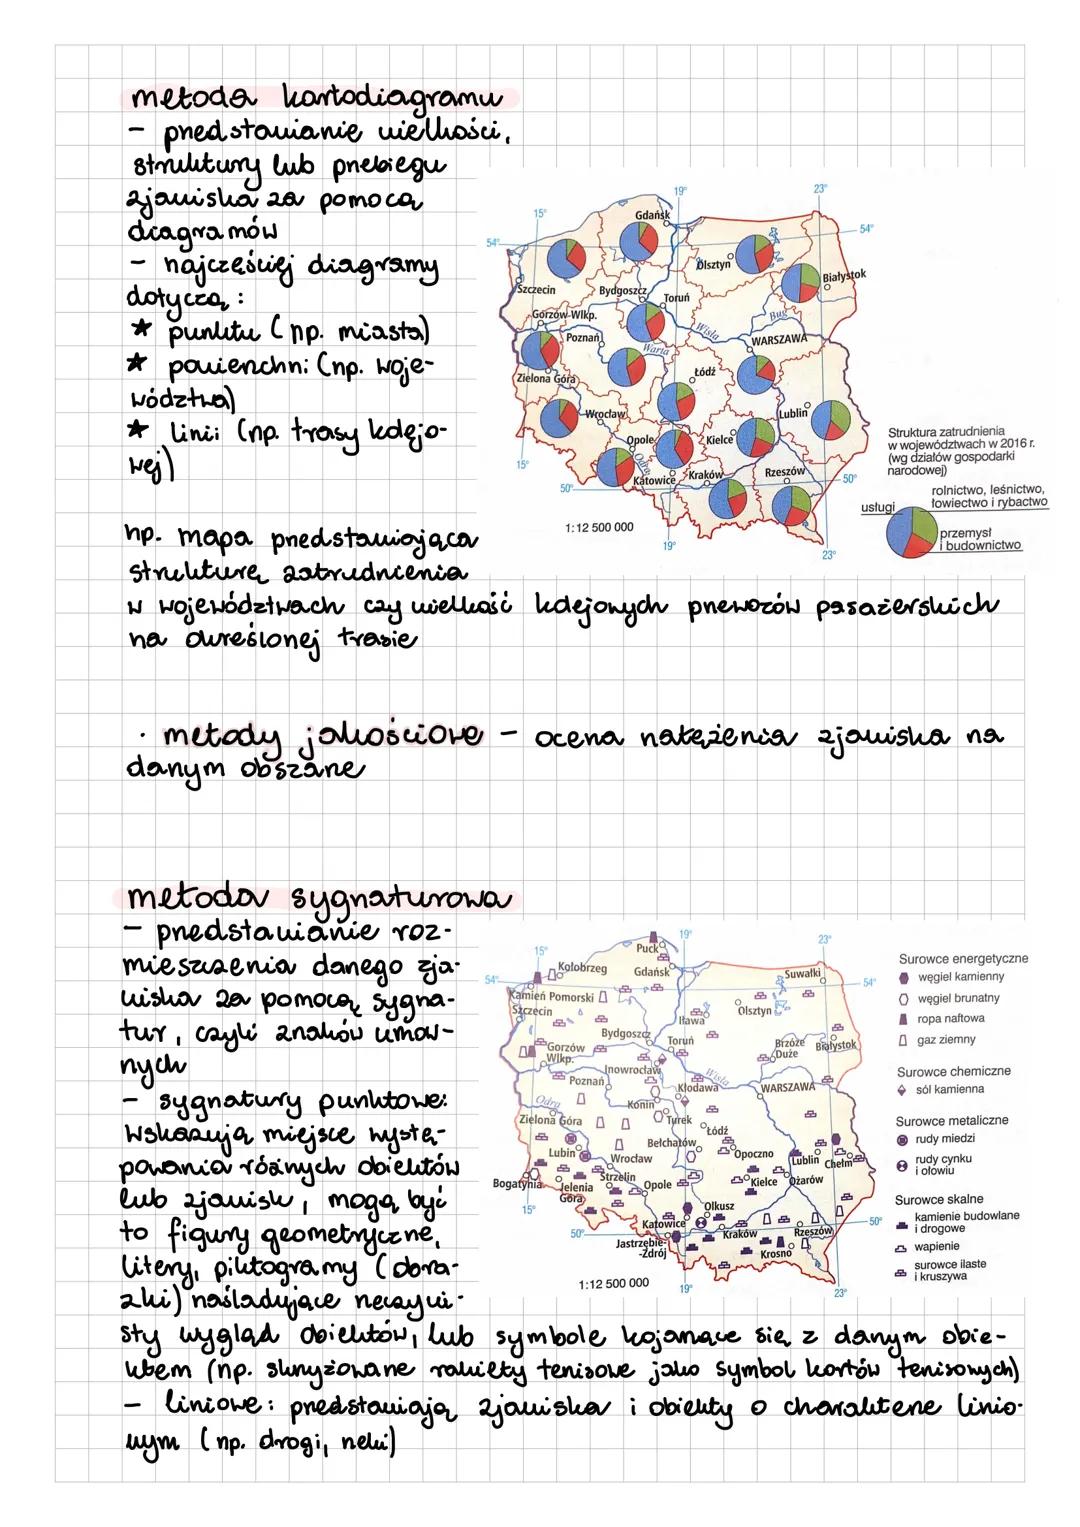 metoda kartodiagramu
- przedstawianie wielkości,
struktury lub przebiegu
zjawiska za pomocą
diagramów
- najczęściej diagramy
dotyczą:
★ punktu (np. miasta)
★ powierzchni (np. woje-
wództwa)
★ linii (np. trasy kolejo-
wej)
np. mapa przedstawiająca
strukturę zatrudnienia
w województwach czy wielkość kolejowych przewozów pasażerskich
na określonej trasie
15°
19°
23°
54°
54°
Gdańsk
Olsztyn
Białystok
Szczecin
Bydgoszcz
Toruń
Bug
Gorzów Wlkp.
Wisła
Poznań
Warta
WARSZAWA
Zielona Góra
Łódź
Wrocław
Lublin
Opole
Kielce
Odra
Katowice
Kraków
Rzeszów
15°
50°
50°
1:12 500 000
19°
23°
Struktura zatrudnienia
w województwach w 2016 r.
(wg działów gospodarki
narodowej)
rolnictwo, leśnictwo,
łowiectwo i rybactwo
usługi
przemysł
i budownictwo
· metody jakościowe - ocena natężenia zjawiska na
danym obszarze
metoda sygnaturowa
- przedstawianie roz-
mieszczenia danego zja-
wiska za pomocą sygna-
tur, czyli znaków umow-
nych
- sygnatury punktowe:
wskazują miejsce wystę-
powania różnych obiektów
lub zjawisk, mogą być
to figury geometryczne,
litery, piktogramy (obra-
zki) naśladujące rzeczywi-
sty wygląd obiektów, lub symbole kojarzące się z danym obie-
ktem (np. skrzyżowane rakiety tenisowe jako symbol kortów tenisowych)
- liniowe: przedstawiają zjawiska i obiekty o charakterze linio-
wym (np. drogi, rzeki)
15°
19°
23°
54°
54°
Puck
Kołobrzeg
Gdańsk
Suwałki
Kamień Pomorski
Szczecin
Iława
Olsztyn
Bydgoszcz
Toruń
Brzóze
Duże
Białystok
Gorzów
Wlkp.
Inowrocław
Wisła
Poznań
Kłodawa
WARSZAWA
Odra
Konin
Zielona Góra
Turek
Łódź
Bełchatów
Lubin
Wrocław
Opoczno
Lublin
Chełm
Bogatynia
Jelenia
Góra
Strzelin
Opole
Kielce
Ożarów
15°
Olkusz
Katowice
Kraków
Rzeszów
50°
50°
Jastrzębie-
-Zdrój
Krosno
1:12 500 000
19°
23°
Surowce energetyczne
węgiel kamienny
węgiel brunatny
ropa naftowa
gaz ziemny
Surowce chemiczne
sól kamienna
Surowce metaliczne
rudy miedzi
rudy cynku
i ołowiu
Surowce skalne
kamienie budowlane
i drogowe
wapienie
surowce ilaste
i kruszywa